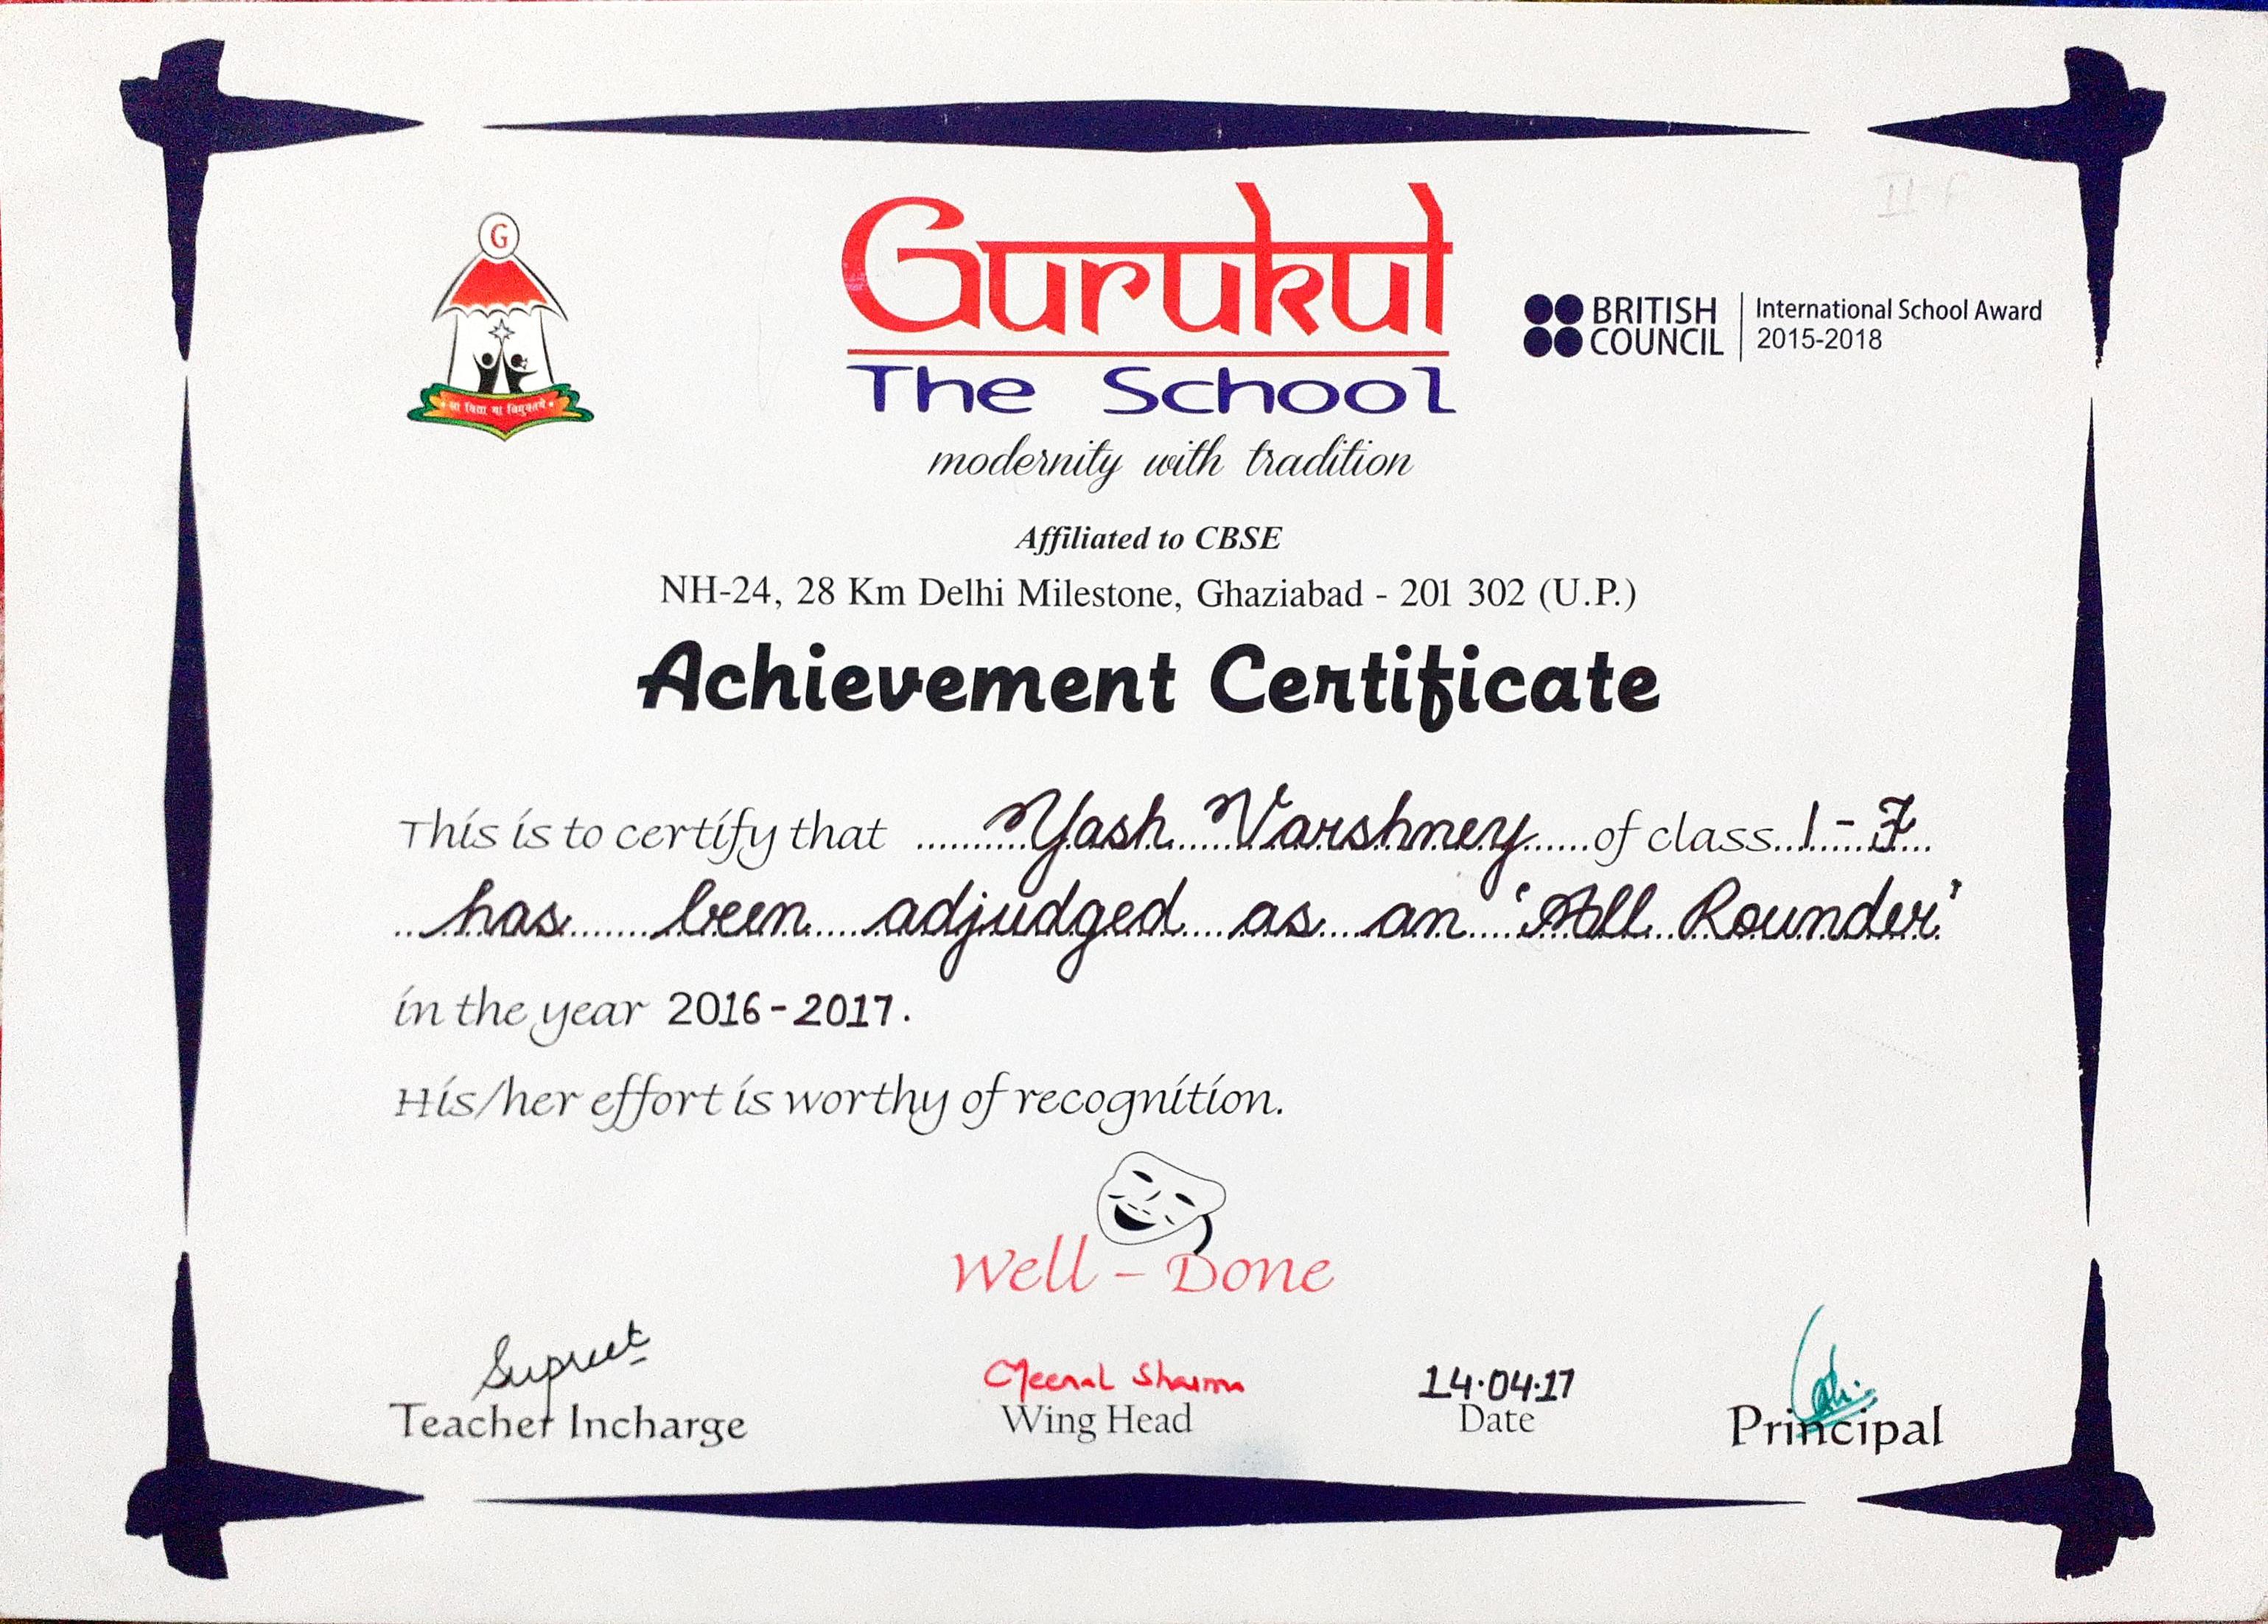 G
सा विद्या या विमुक्तये
Gurukul
The School
modernity with tradition
BRITISH COUNCIL
International School Award
2015-2018
II-F
Affiliated to CBSE
NH-24, 28 Km Delhi Milestone, Ghaziabad - 201 302 (U.P.)
Achievement Certificate
This is to certify that Yash Varshney of class 1-F
has been adjudged as an 'All Rounder'
in the year 2016-2017.
His/her effort is worthy of recognition.
Well - Done
Supreet
Teacher Incharge
Meenal Sharma
Wing Head
14.04.17
Date
Principal